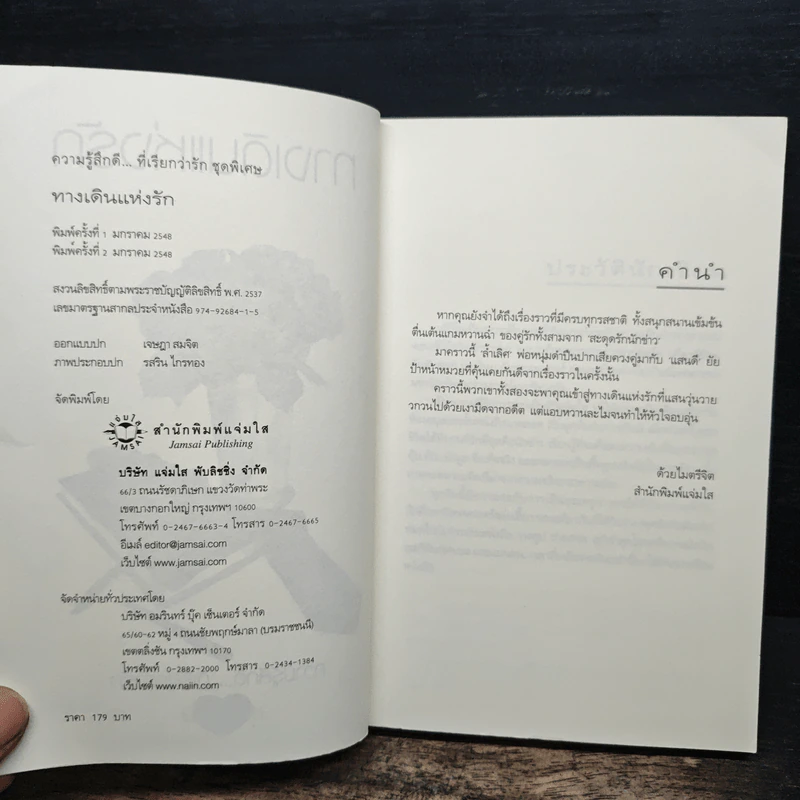 ความรู้สึกดี... ที่เรียกว่ารัก ชุดพิเศษ
ทางเดินแห่งรัก
พิมพ์ครั้งที่ 1 มกราคม 2548
พิมพ์ครั้งที่ 2 มกราคม 2548
สงวนลิขสิทธิ์ตามพระราชบัญญัติลิขสิทธิ์ พ.ศ. 2537
เลขมาตรฐานสากลประจำหนังสือ 974-92684-1-5
ออกแบบปก เจษฎา สมจิต
ภาพประกอบปก รสริน ไกรทอง
จัดพิมพ์โดย
แจ่มใส
JAMSAI
สำนักพิมพ์แจ่มใส
Jamsai Publishing
บริษัท แจ่มใส พับลิชชิ่ง จำกัด
66/3 ถนนรัชดาภิเษก แขวงวัดท่าพระ
เขตบางกอกใหญ่ กรุงเทพฯ 10600
โทรศัพท์ 0-2467-6663-4 โทรสาร 0-2467-6665
อีเมล์ editor@jamsai.com
เว็บไซต์ www.jamsai.com
จัดจำหน่ายทั่วประเทศโดย
บริษัท อมรินทร์ บุ๊ค เซ็นเตอร์ จำกัด
65/60-62 หมู่ 4 ถนนชัยพฤกษ์มาลา (บรมราชชนนี)
เขตตลิ่งชัน กรุงเทพฯ 10170
โทรศัพท์ 0-2882-2000 โทรสาร 0-2434-1384
เว็บไซต์ www.naiin.com
ราคา 179 บาท
คำนำ
หากคุณยังจำได้ถึงเรื่องราวที่มีครบทุกรสชาติ ทั้งสนุกสนานเข้มข้น
ตื่นเต้นแกมหวานฉ่ำ ของคู่รักทั้งสามจาก 'สะดุดรักนักข่าว'
มาคราวนี้ 'ล้ำเลิศ' พ่อหนุ่มดำปืนปากเสียควงคู่มากับ 'แสนดี' ยัย
ป้าหน้าหมวยที่คุ้นเคยกันดีจากเรื่องราวในครั้งนั้น
คราวนี้พวกเขาทั้งสองจะพาคุณเข้าสู่ทางเดินแห่งรักที่แสนวุ่นวาย
วกวนไปด้วยเงามืดจากอดีต แต่แอบหวานละไมจนทำให้หัวใจอบอุ่น
ด้วยไมตรีจิต
สำนักพิมพ์แจ่มใส